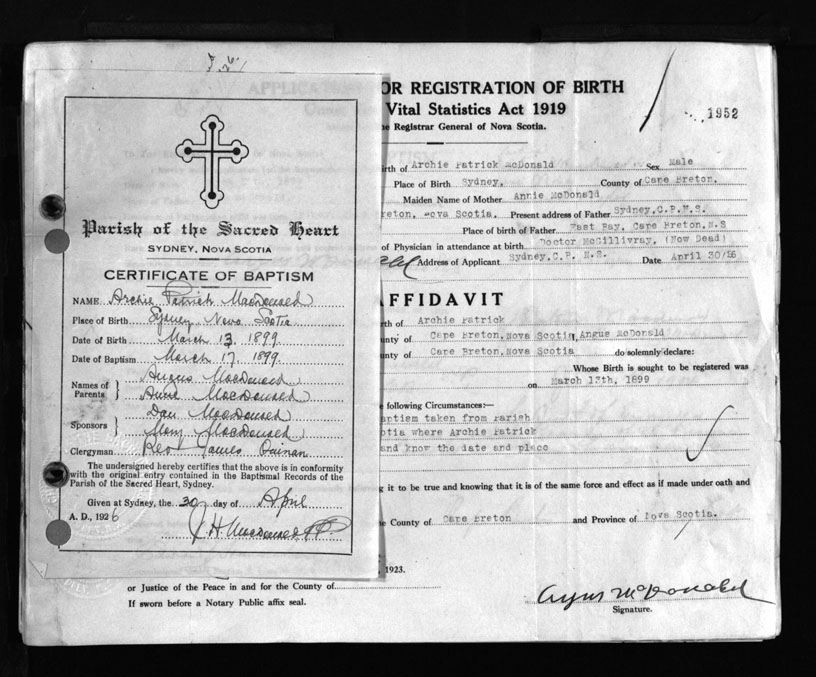 Parish of the Sacred Heart
SYDNEY, NOVA SCOTIA
CERTIFICATE OF BAPTISM
NAME Archie Patrick MacDonald
Place of Birth Sydney Nova Scotia
Date of Birth March 13. 1899
Date of Baptism March 17. 1899.
Names of Parents } Angus MacDonald
Annie MacDonald
Sponsors } Dan MacDonald
Mary MacDonald
Clergyman Rev James Quinan
The undersigned hereby certifies that the above is in conformity
with the original entry contained in the Baptismal Records of the
Parish of the Sacred Heart, Sydney.
Given at Sydney, the 30 day of April
A. D., 1926
H. MacDonald P.P.
OR REGISTRATION OF BIRTH
Vital Statistics Act 1919
1952
e Registrar General of Nova Scotia.
irth of Archie Patrick McDonald Sex Male
Place of Birth Sydney, County of Cape Breton,
Maiden Name of Mother Annie McDonald
reton, Nova Scotia. Present address of Father Sydney, C.P.N.S.
Place of birth of Father East Bay, Cape Breton, N.S
of Physician in attendance at birth Doctor McGillivray, (Now Dead)
Address of Applicant Sydney, C.P. N.S. Date April 30/26
AFFIDAVIT
rth of Archie Patrick
unty of Cape Breton, Nova Scotia, Angus McDonald
unty of Cape Breton, Nova Scotia do solemnly declare:
Whose Birth is sought to be registered was
on March 13th, 1899
e following Circumstances:—
aptism taken from Parish
otia where Archie Patrick
and know the date and place
ng it to be true and knowing that it is of the same force and effect as if made under oath and
e County of Cape Breton and Province of Nova Scotia.
1923.
or Justice of the Peace in and for the County of
If sworn before a Notary Public affix seal.
Angus McDonald
Signature.